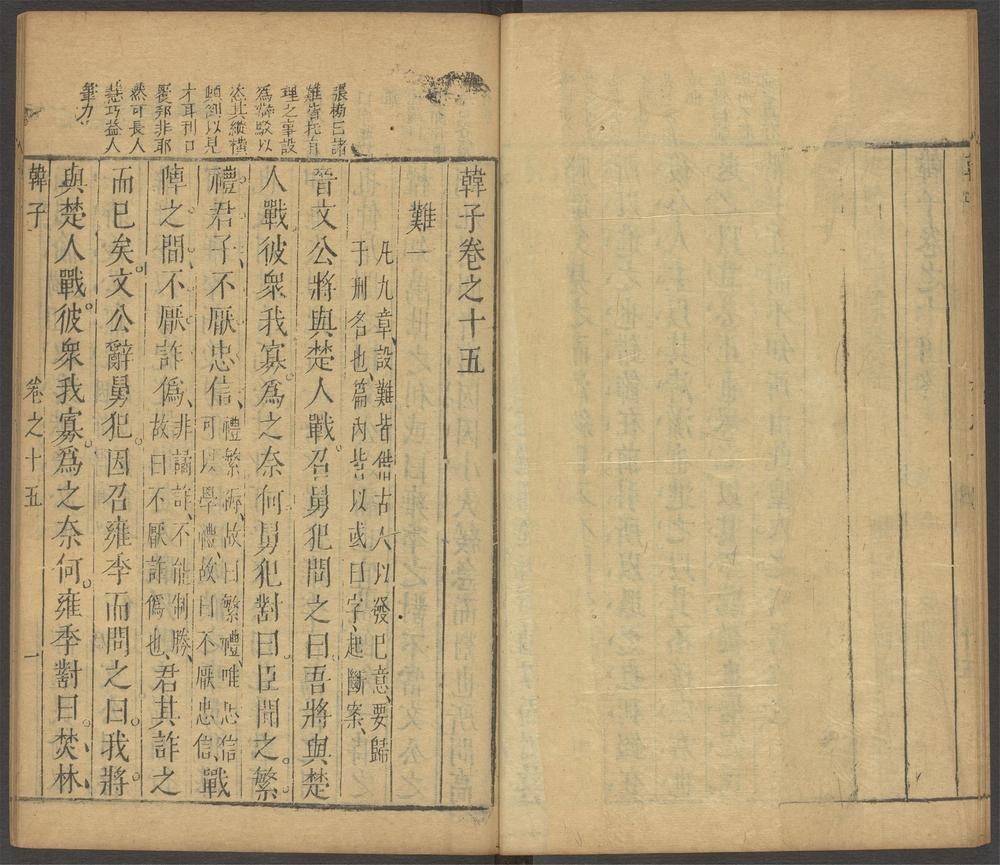 張榜曰諸
難皆托古
理之事設
為辯駁以
恣其縱橫
顛劉以見
才耳刊口
覆邦非耶
然可長人
慧巧益人
筆力
韓子卷之十五
難一
凡九章、設難皆借古人以發已意、要歸
于刑名也、篇內皆以或曰字起斷案、
晉文公將與楚人戰。召舅犯問之曰吾將與楚
人戰彼衆我寡。爲之奈何。舅犯對曰。臣聞之。繁
禮君子、不厭忠信、禮繁縟、故曰繁禮、唯忠信可以學禮、故曰不厭忠信、戰
陣之間、不厭詐僞、非譎詐、不能制勝、故曰不厭詐僞也、君其詐之
而已矣。文公辭舅犯。因召雍季而問之曰。我將
與楚人戰。彼衆我寡。爲之奈何。雍季對曰。焚林、
韓子
卷之十五
一